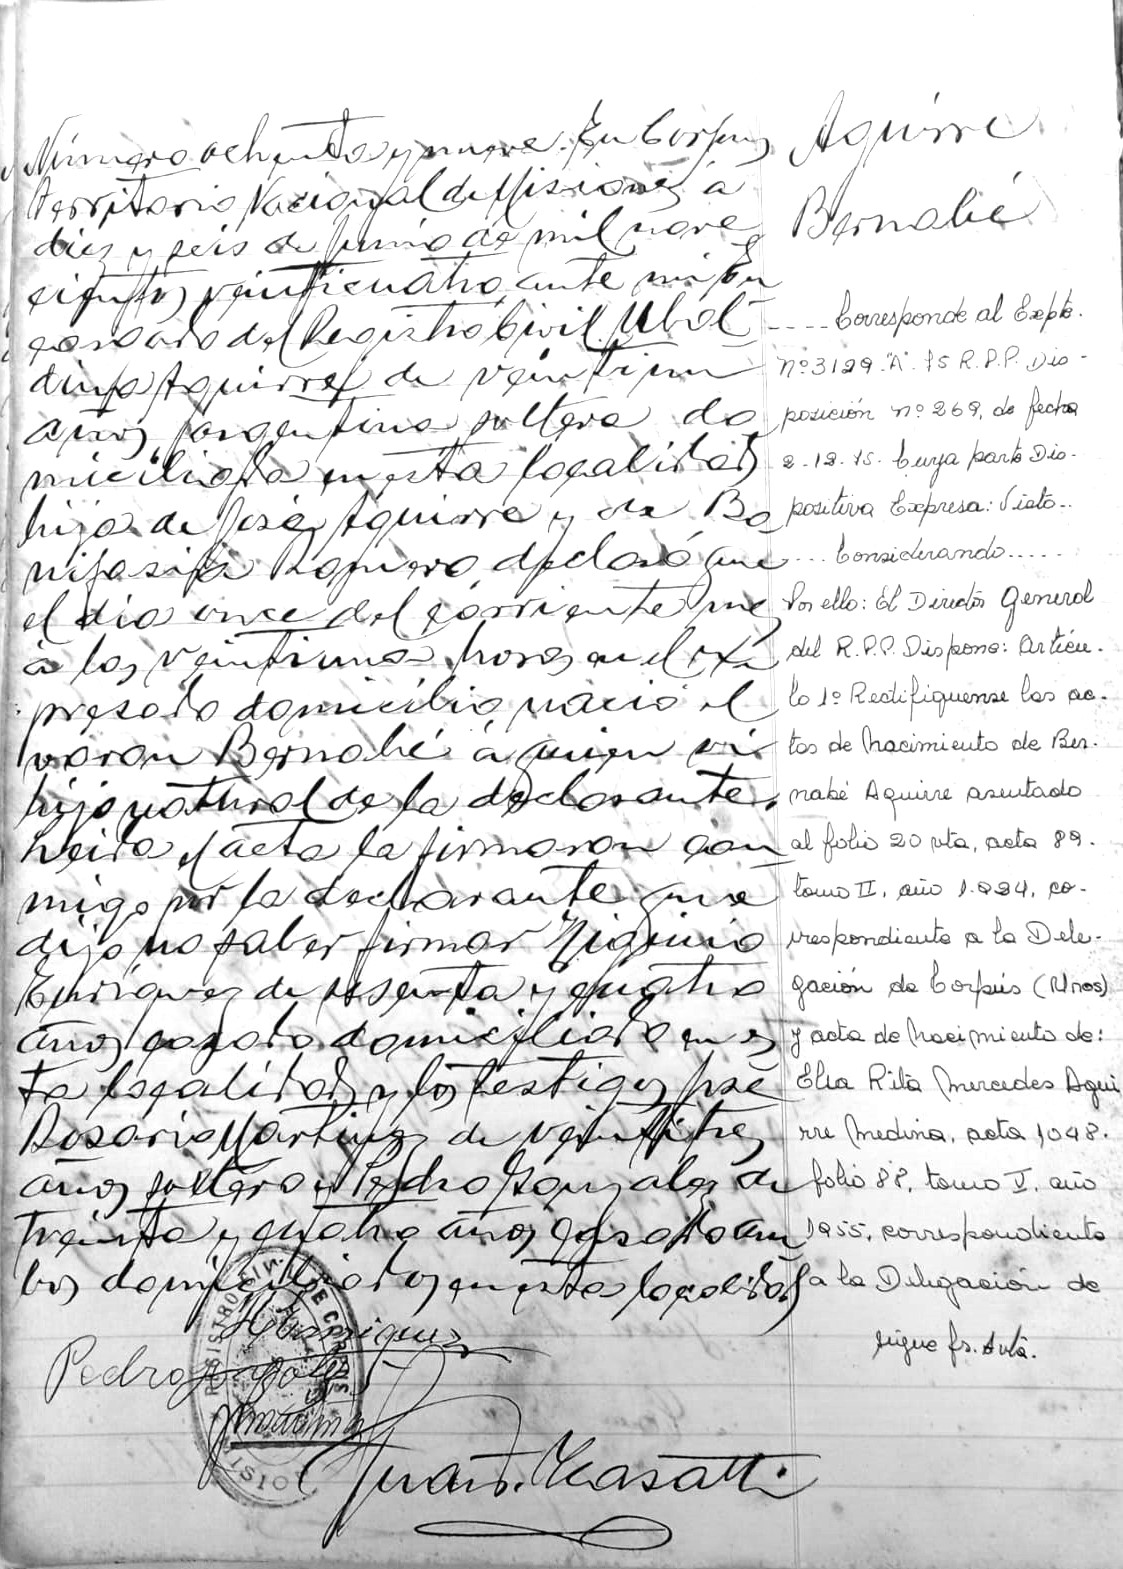 Número ochenta y nueve. En Corpus
Territorio Nacional de Misiones á
diez y seis de Junio de mil nove
cientos veinticuatro, ante mi En
cargado del Registro Civil. Ubal
dina Aguirre de veintiun
años, argentina soltera do
miciliada en esta localidad
hija de José Aguirre y de Bo
nifasia Romero, declaró que
el dia once del corriente mes
á las veintiuna horas en el ex
presado domicilio nació el
varon Bernabé á quien vi
hijo natural de la declarante.
Leida el acta la firmaron con
migo por la declarante que
dijo no saber firmar Higinio
Enriquez de sesenta y cuatro
años casado domiciliado en es
ta localidad y los testigos José
Rosario Martinez de veintitres
años soltero y Pedro Gonzalez de
treinta y cuatro años casado am
bos domiciliados en esta localidad
HEnriquez
Pedro
Juan Casatti
REGISTRO CIVIL DE CORPUS
MISIO
Aguirre
Bernabé
----Corresponde al Expte.
Nº 3129 "A" 75 R.P.P. Dis-
posición nº 269, de fecha
2-12-75. Cuya parte Dis-
positiva Expresa: Visto..
... Considerando.....
Por ello: El Director General
del R.P.P. Dispone: Artícu-
lo 1º Rectifiquense las ac-
tas de Nacimiento de Ber-
nabé Aguirre asentado
al folio 20 vta, acta 89.
tomo II, año 1.924, co-
rrespondiente a la Dele-
gación de Corpús (Mnes)
y acta de Nacimiento de:
Elsa Rita Mercedes Agui
rre Medina, acta 1048.
folio 88, tomo I, año
1955, correspondiente
a la Delegación de
sigue fs. vta.